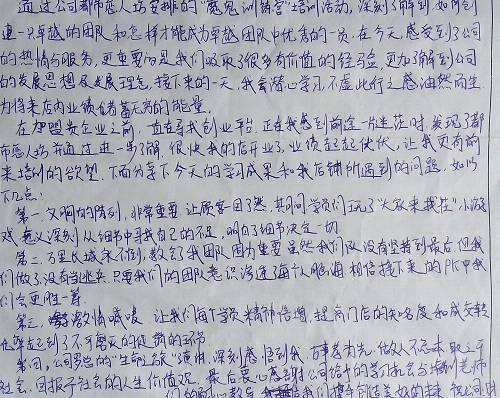 通过公司都市恋人坊安排的“魔鬼训练营”培训活动，深刻了解到如何创
建一只卓越的团队和怎样才能成为卓越团队中优秀的一员，在今天感受到了公司
的热情与服务，更重要的是我们收取了很多有价值的经验，更加了解到公司
的发展思想及发展理念，接下来的一天，我会潜心学习不虚此行之感油然而生
为将来店内业绩储蓄无穷的能量。
在加盟贵企业之前，一直在寻找创业平台，正在我感到前途一片迷茫时，发现了都
市恋人坊并通过进一步了解，很快我的店开业了，业绩起起伏伏，让我更有前
来培训的欲望，下面分享下今天的学习成果和我店铺所遇到的问题，如以
下几点：
第一，文胸的陈列，非常重要，让顾客一目了然，共同学员们玩了“大家来找茬”小游
戏，意义深刻，从细节中寻找自己的不足，明白了细节决定一切
第二，万里长城永不倒，教会了我团队因为重要，虽然我们队没有坚持到最后，但我
们做了，没有当逃兵，只要我们的团队意识渗透了每个人脑海，相信接下来的PK中我
们会更胜一筹
第三，激情喊喽，让我们每个学员精神倍增，提高门店的知名度和成交率
也算起到了不可磨灭的促销的环节
第四，公司罗总的“生命之旅”演讲，深刻感悟到我，百善孝为先，做人不忘本，取之于
社会，回报于社会的人生价值观，最后衷心感谢公司给予的学习机会与培训老师
们的耐心教导，我们携手同造美好的未来，祝公司